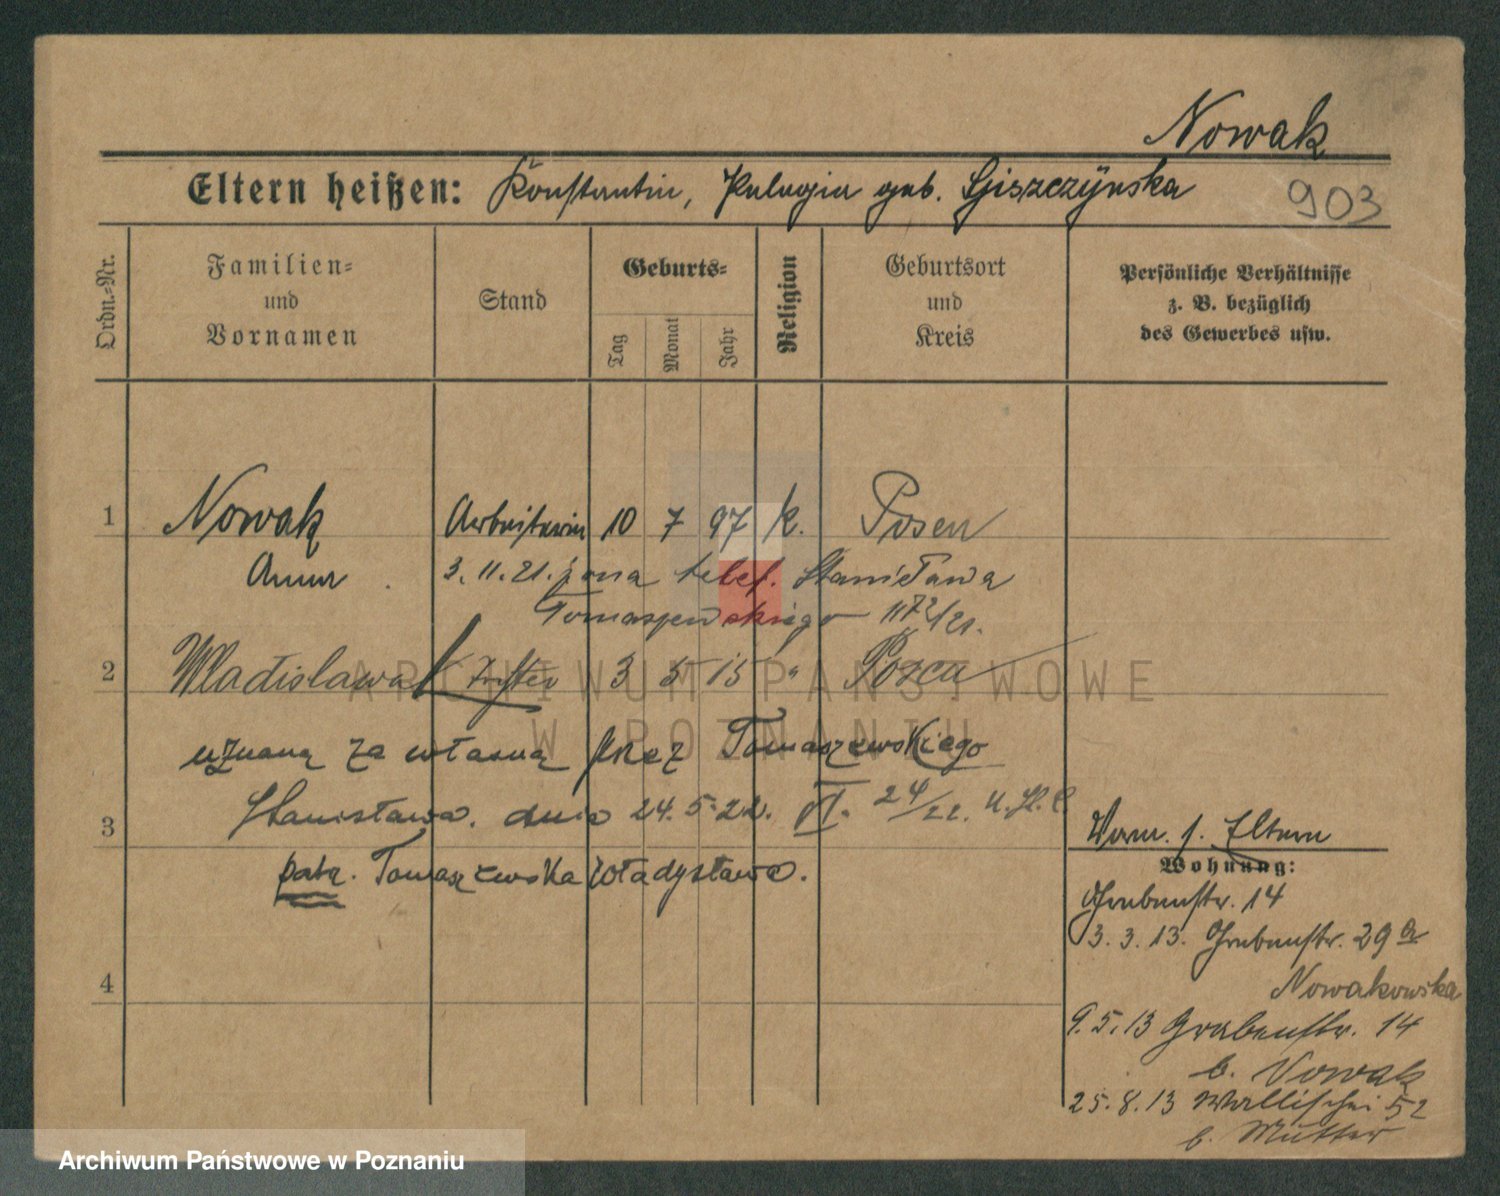 Nowak
Eltern heißen: Konstantin, Pelagia geb. Giszczyńska
903
Ordn.-Nr.
Familien-
und
Vornamen
Stand
Geburts-
Tag
Monat
Jahr
Religion
Geburtsort
und
Kreis
Persönliche Verhältnisse
z. B. bezüglich
des Gewerbes usw.
1 Nowak Arbeiterin 10 7 97 k. Posen
Anna 3.11.21. żona telef. Stanisława
Tomaszewskiego
2 Władisława Tochter 3 5 15 " Posen
uznaną za własną przez Tomaszewskiego
3 Stanisława. dnia 24.5.22. VI. 24/22. U.St.C.
patrz. Tomaszewska Władysława.
4
Vorm. s. Eltern
Wohnung:
Grabenstr. 14
3.3.13. Grabenstr. 29a
Nowakowska
9.5.13 Grabenstr. 14
b. Nowak
25.8.13 Wallischei 52
b. Mutter
ARCHIWUM PAŃSTWOWE
W POZNANIU
Archiwum Państwowe w Poznaniu